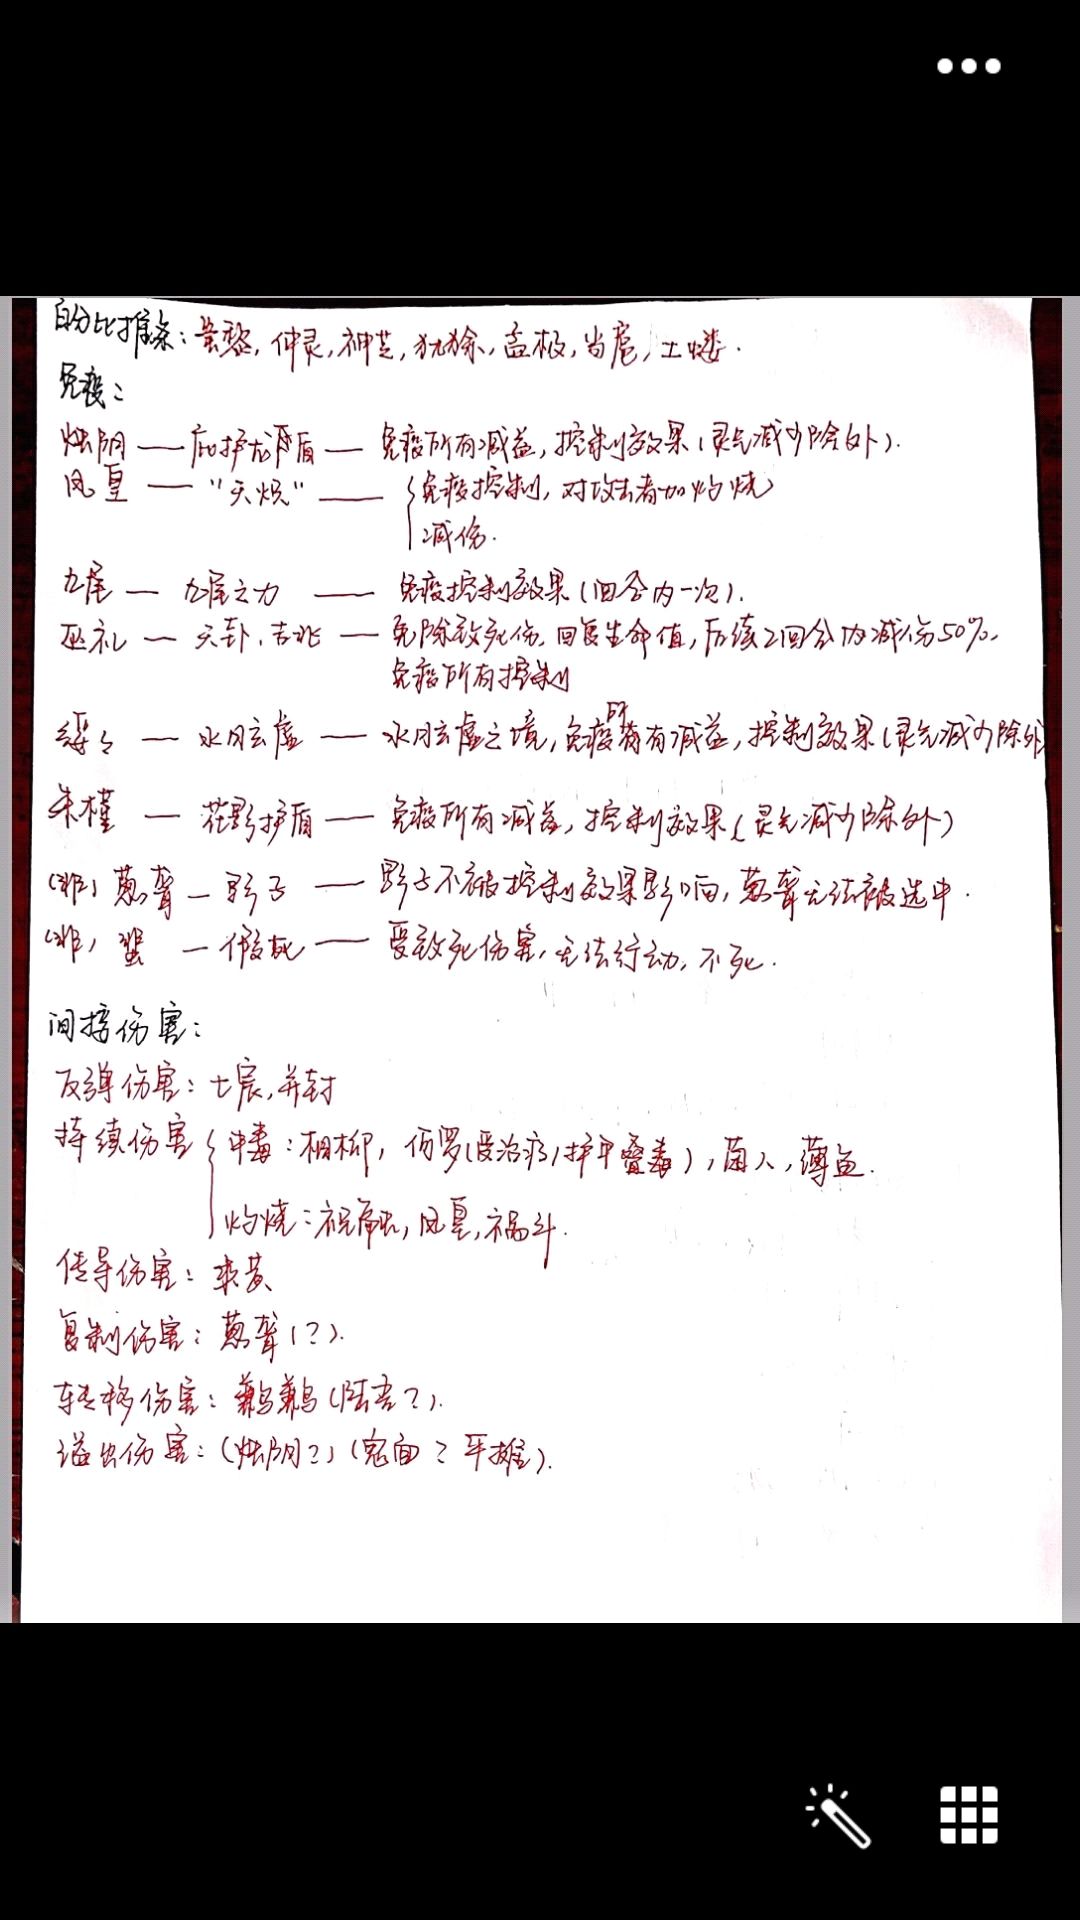 百分比推条：黄鷔，仲灵，神芝，犰狳，孟极，当扈，土蝼．
免疫：
烛阴 — 庇护龙盾 — 免疫所有减益，控制效果（灵气减少除外）．
凤皇 — “天炽” — 免疫控制，对攻击者加灼烧
减伤．
九尾 — 九尾之力 — 免疫控制效果（1回合内一次）．
巫礼 — 天卦．吉兆 — 免除致死伤，回复生命值，后续2回合内减伤50%．
免疫所有控制
绥绥 — 水月玄虚 — 水月玄虚之境，免疫所有减益，控制效果（灵气减少除外
朱槿 — 花影护盾 — 免疫所有减益，控制效果（灵气减少除外）
（非）葱聋 — 影子 — 影子不被控制效果影响，葱聋无法被选中．
（非）蜚 — 假死 — 受致死伤害，无法行动，不死．
间接伤害：
反弹伤害：七宸，并封
持续伤害 中毒：相柳，伤罗（受治疗/护甲叠毒），菌人，薄鱼．
灼烧：祝融，凤皇，祸斗．
传导伤害：乘黄
复制伤害：葱聋（？）．
转移伤害：鹣鹣（陆吾？）．
溢出伤害：（烛阴？）（鬼面？平摊）．